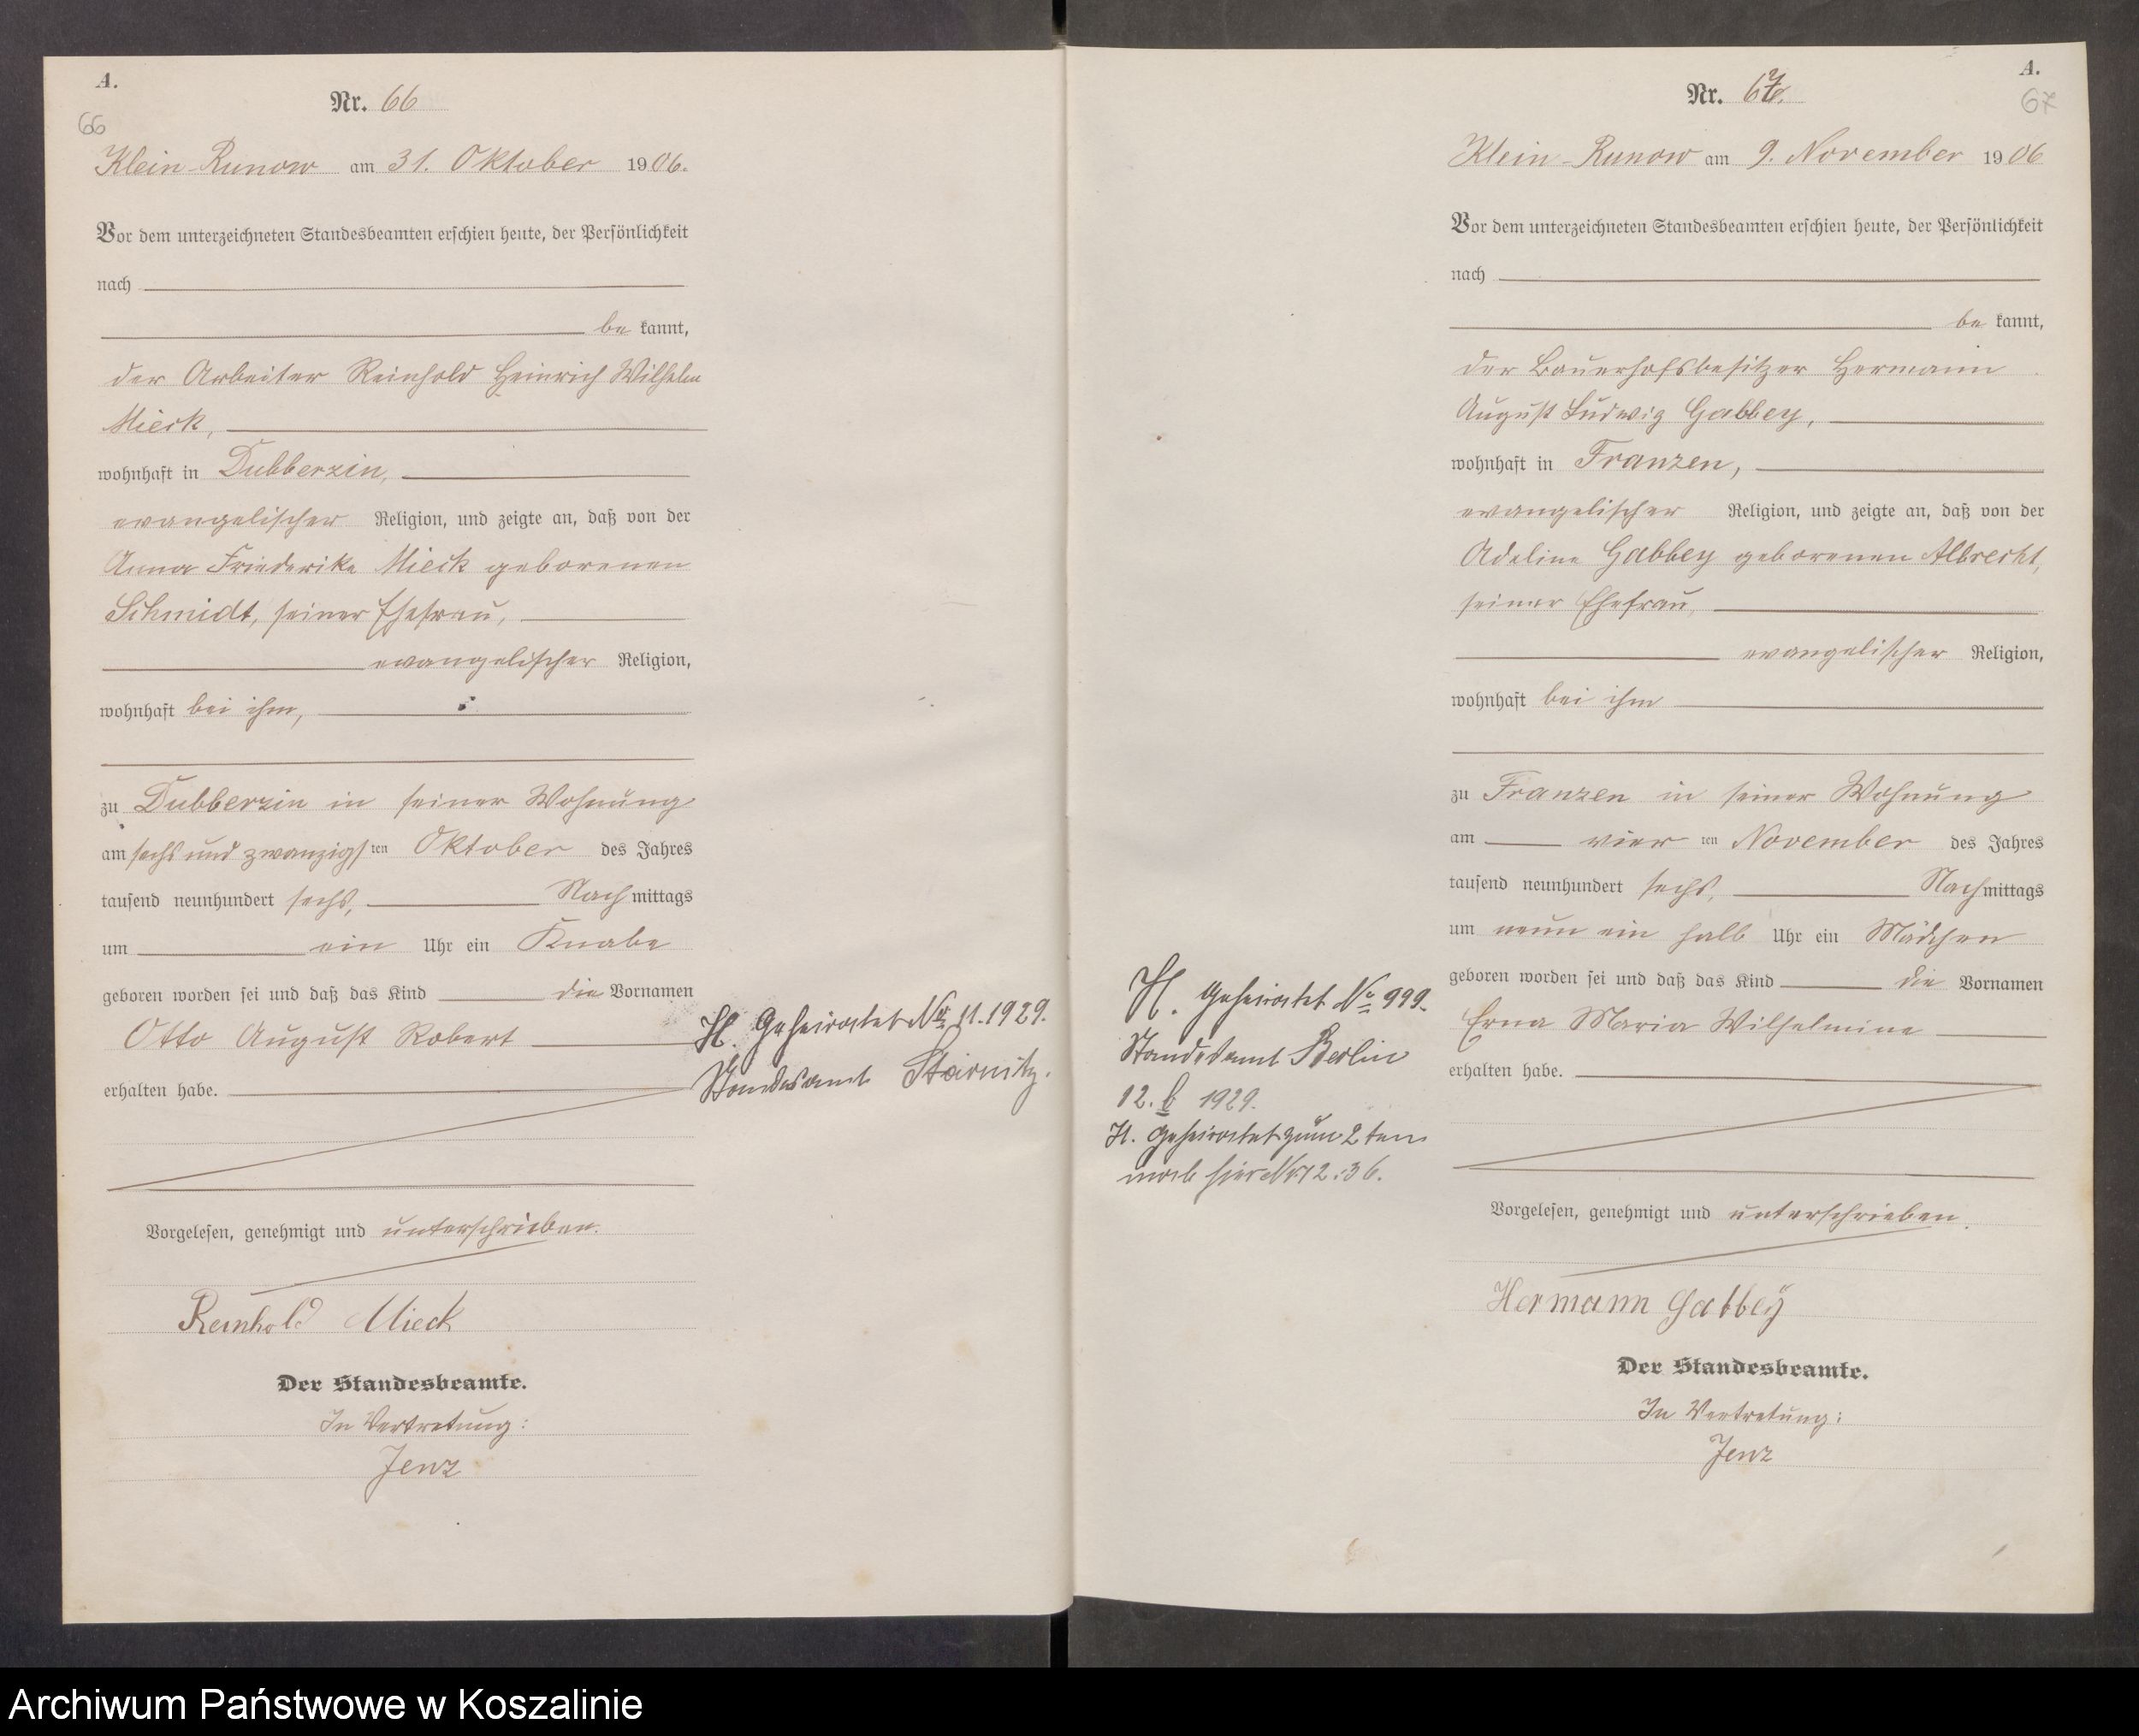 A.
Nr. 66
66
Klein-Runow am 31. Oktober 1906.
Vor dem unterzeichneten Standesbeamten erschien heute, der Persönlichkeit
nach
be kannt,
der Arbeiter Reinhold Heinrich Wilhelm
Mieck,
wohnhaft in Dubberzin,
evangelischer Religion, und zeigte an, daß von der
Anna Friederike Mieck geborenen
Schmidt, seiner Ehefrau,
evangelischer Religion,
wohnhaft bei ihm,
zu Dubberzin in seiner Wohnung
am sechs und zwanzigsten Oktober des Jahres
tausend neunhundert sechs, Nachmittags
um ein Uhr ein Knabe
geboren worden sei und daß das Kind die Vornamen
Otto August Robert
erhalten habe.
H. Geheiratet Nr. 11.1929.
Standesamt
Vorgelesen, genehmigt und unterschrieben.
Reinhold Mieck
Der Standesbeamte.
In Vertretung:
Jenz
A.
Nr. 67.
67
Klein-Runow am 9. November 1906
Vor dem unterzeichneten Standesbeamten erschien heute, der Persönlichkeit
nach
be kannt,
der Bauerhofsbesitzer Hermann
August Ludwig Gabbey,
wohnhaft in Franzen,
evangelischer Religion, und zeigte an, daß von der
Adeline Gabbey geborenen Albrecht,
seiner Ehefrau,
evangelischer Religion,
wohnhaft bei ihm
zu Franzen in seiner Wohnung
am vier ten November des Jahres
tausend neunhundert sechs, Nachmittags
um neun ein halb Uhr ein Mädchen
geboren worden sei und daß das Kind die Vornamen
Erna Maria Wilhelmine
erhalten habe.
H. Geheiratet No 999.
Standesamt Berlin
12. b 1929.
H. Geheiratet zum 2 ten
mal hier Nr. 12.36.
Vorgelesen, genehmigt und unterschrieben.
Hermann Gabbey
Der Standesbeamte.
In Vertretung:
Jenz
Archiwum Państwowe w Koszalinie